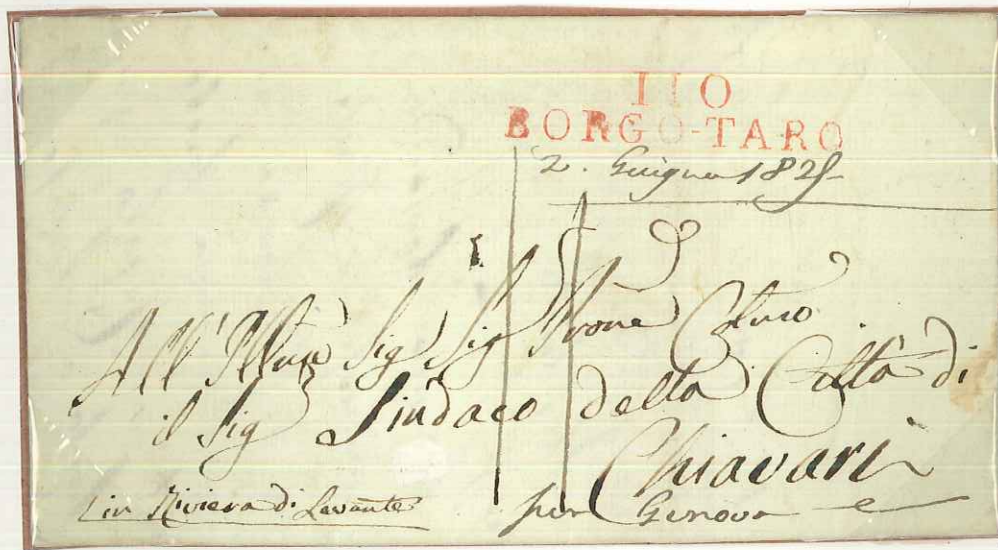 110
BORGO-TARO
2. Giugno 182
All' Illmo Sig Sig Prone Colmo
il Sig Sindaco della Città di
Chiavari
in Riviera di Levante
per Genova